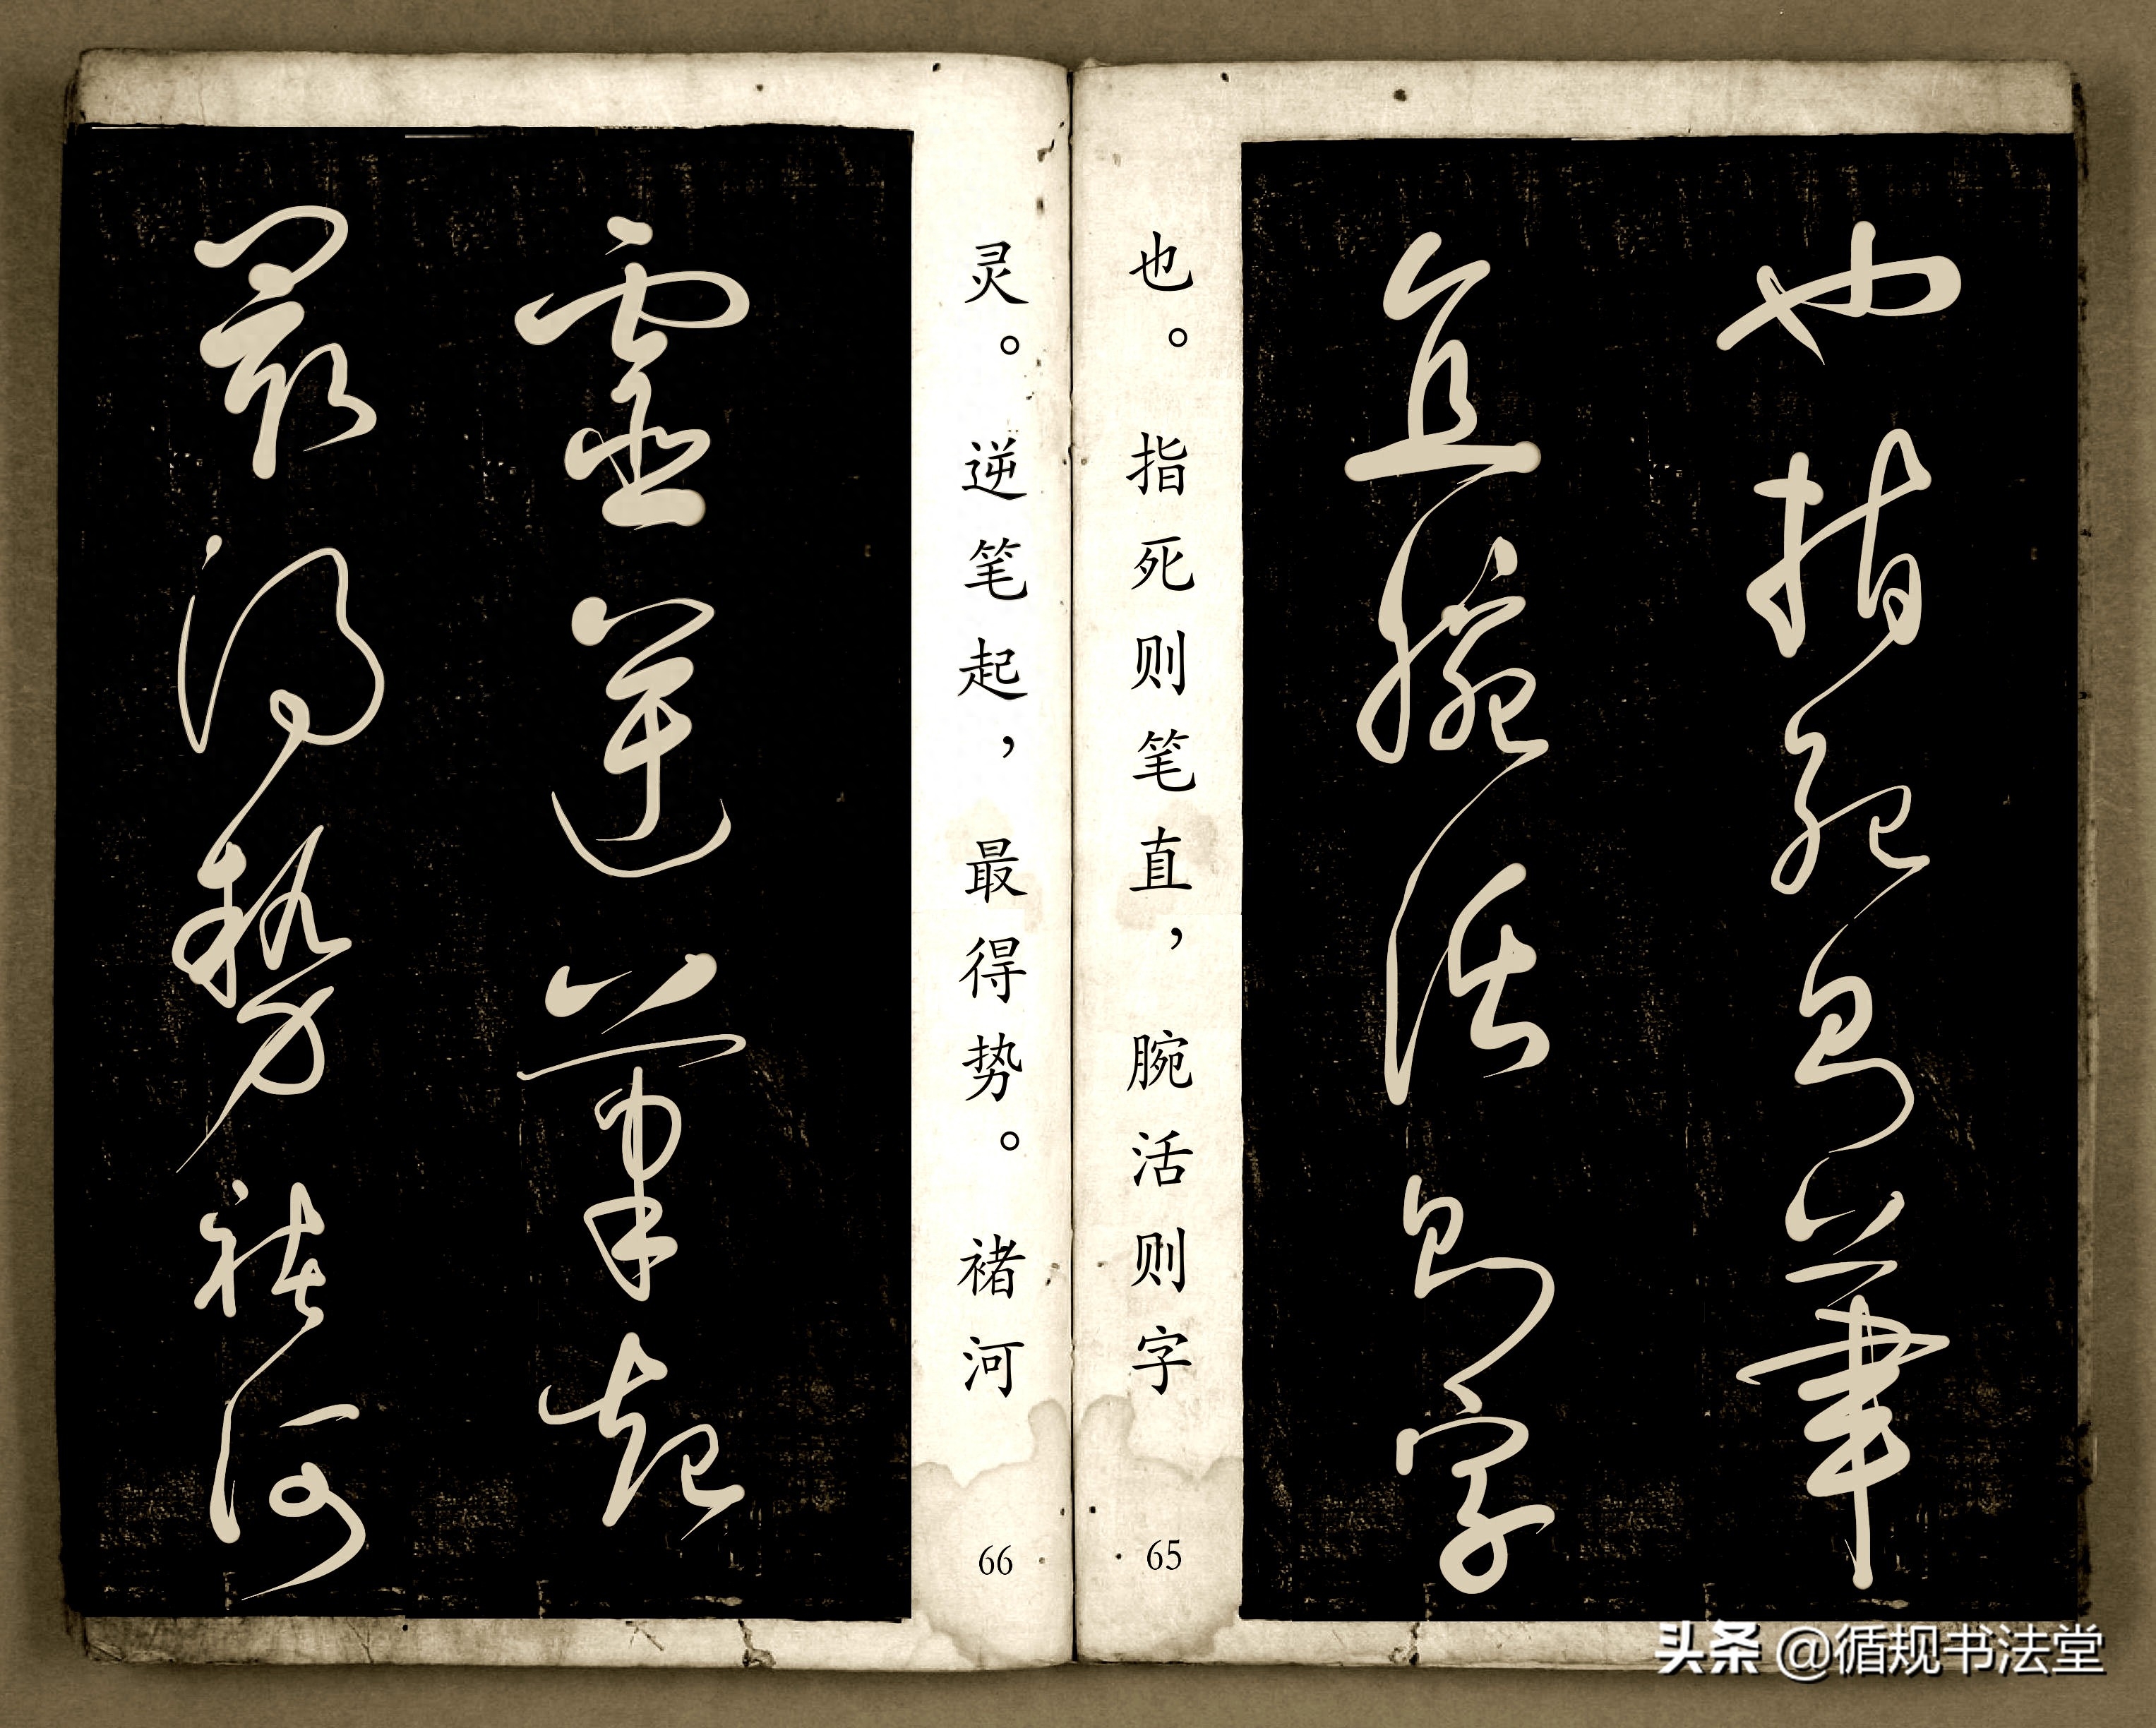 也指死则筆
直腕活则字
也。指死则笔直，腕活则字
65
灵。逆笔起，最得势。褚河
66
靈逆筆起
最得势褚河
头条 @循规书法堂